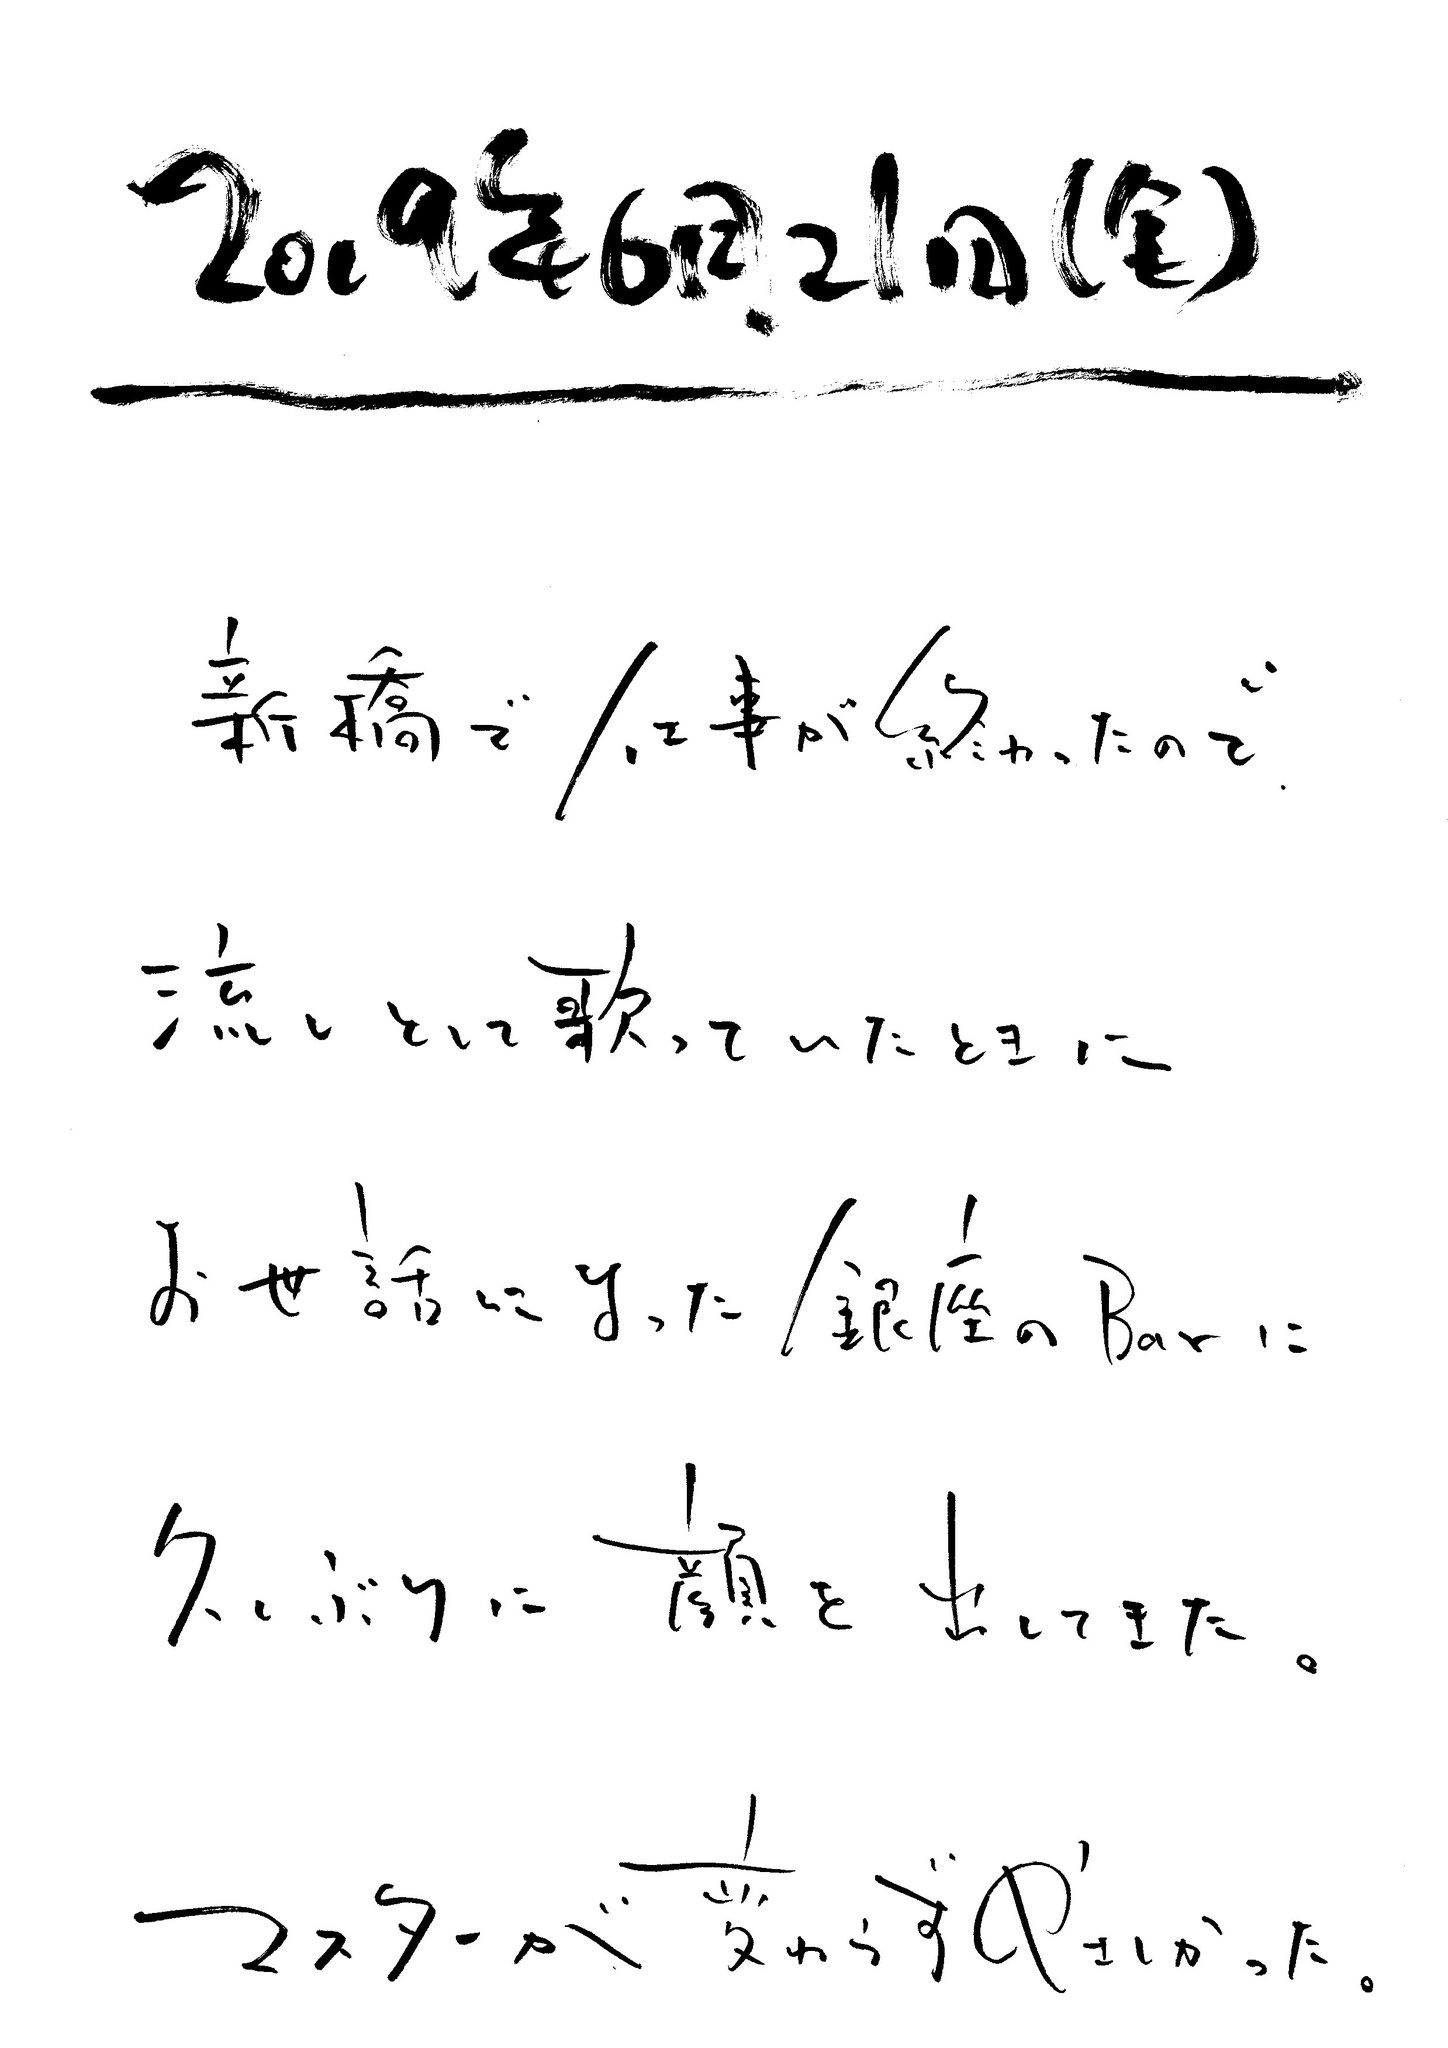 2019年6月21日(金)
新橋で仕事が終わったので
流しとして歌っていたときに
お世話になった銀座のBarに
久しぶりに顔を出してきた。
マスターが変わらずやさしかった。